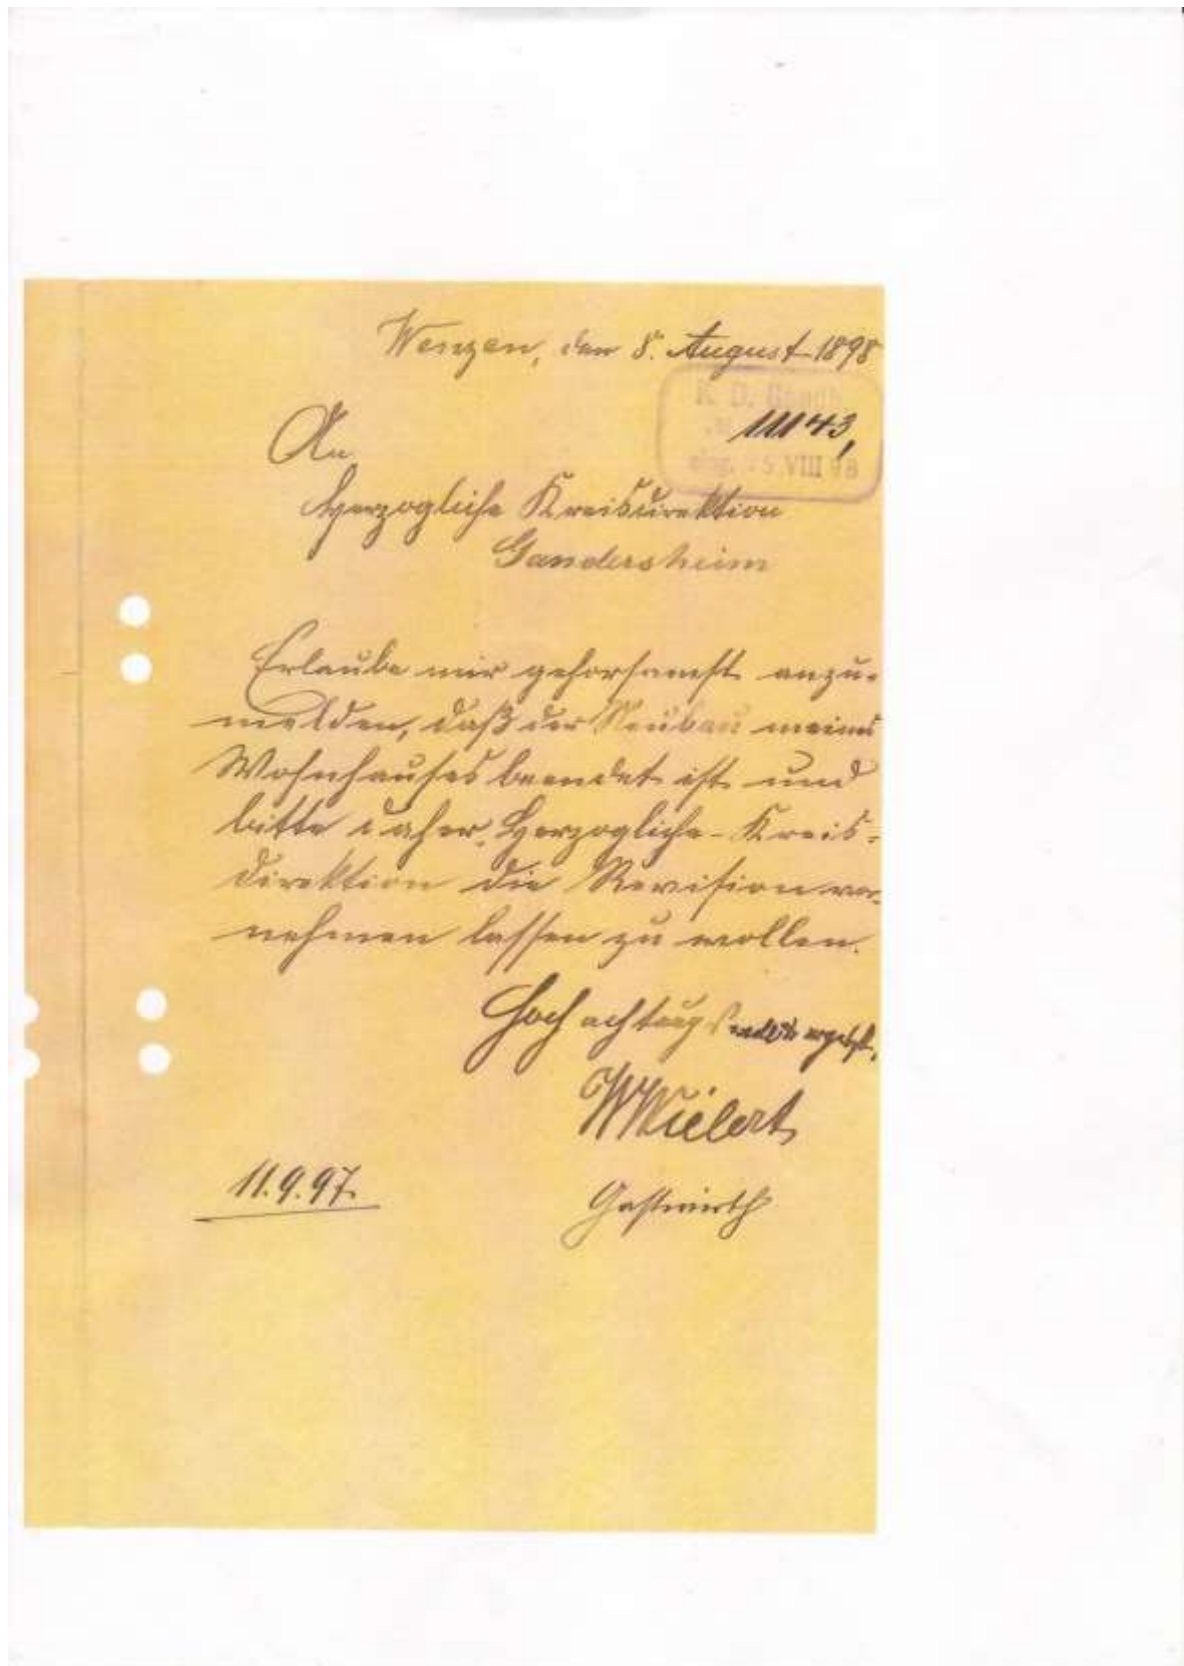 Wenzen, den 5. August 1898
K. D. Gandh.
11143,
eing. 5 VIII 98
An
Herzogliche Kreisdirektion
Gandersheim
Erlaube mir gehorsamst anzu-
melden, daß der Neubau meines
Wohnhauses beendet ist und
bitte daher, Herzogliche Kreis-
direktion die Revision vor-
nehmen lassen zu wollen.
Hochachtungsvoll ergebst.
W Wielert
11.9.97.
Gastwirth